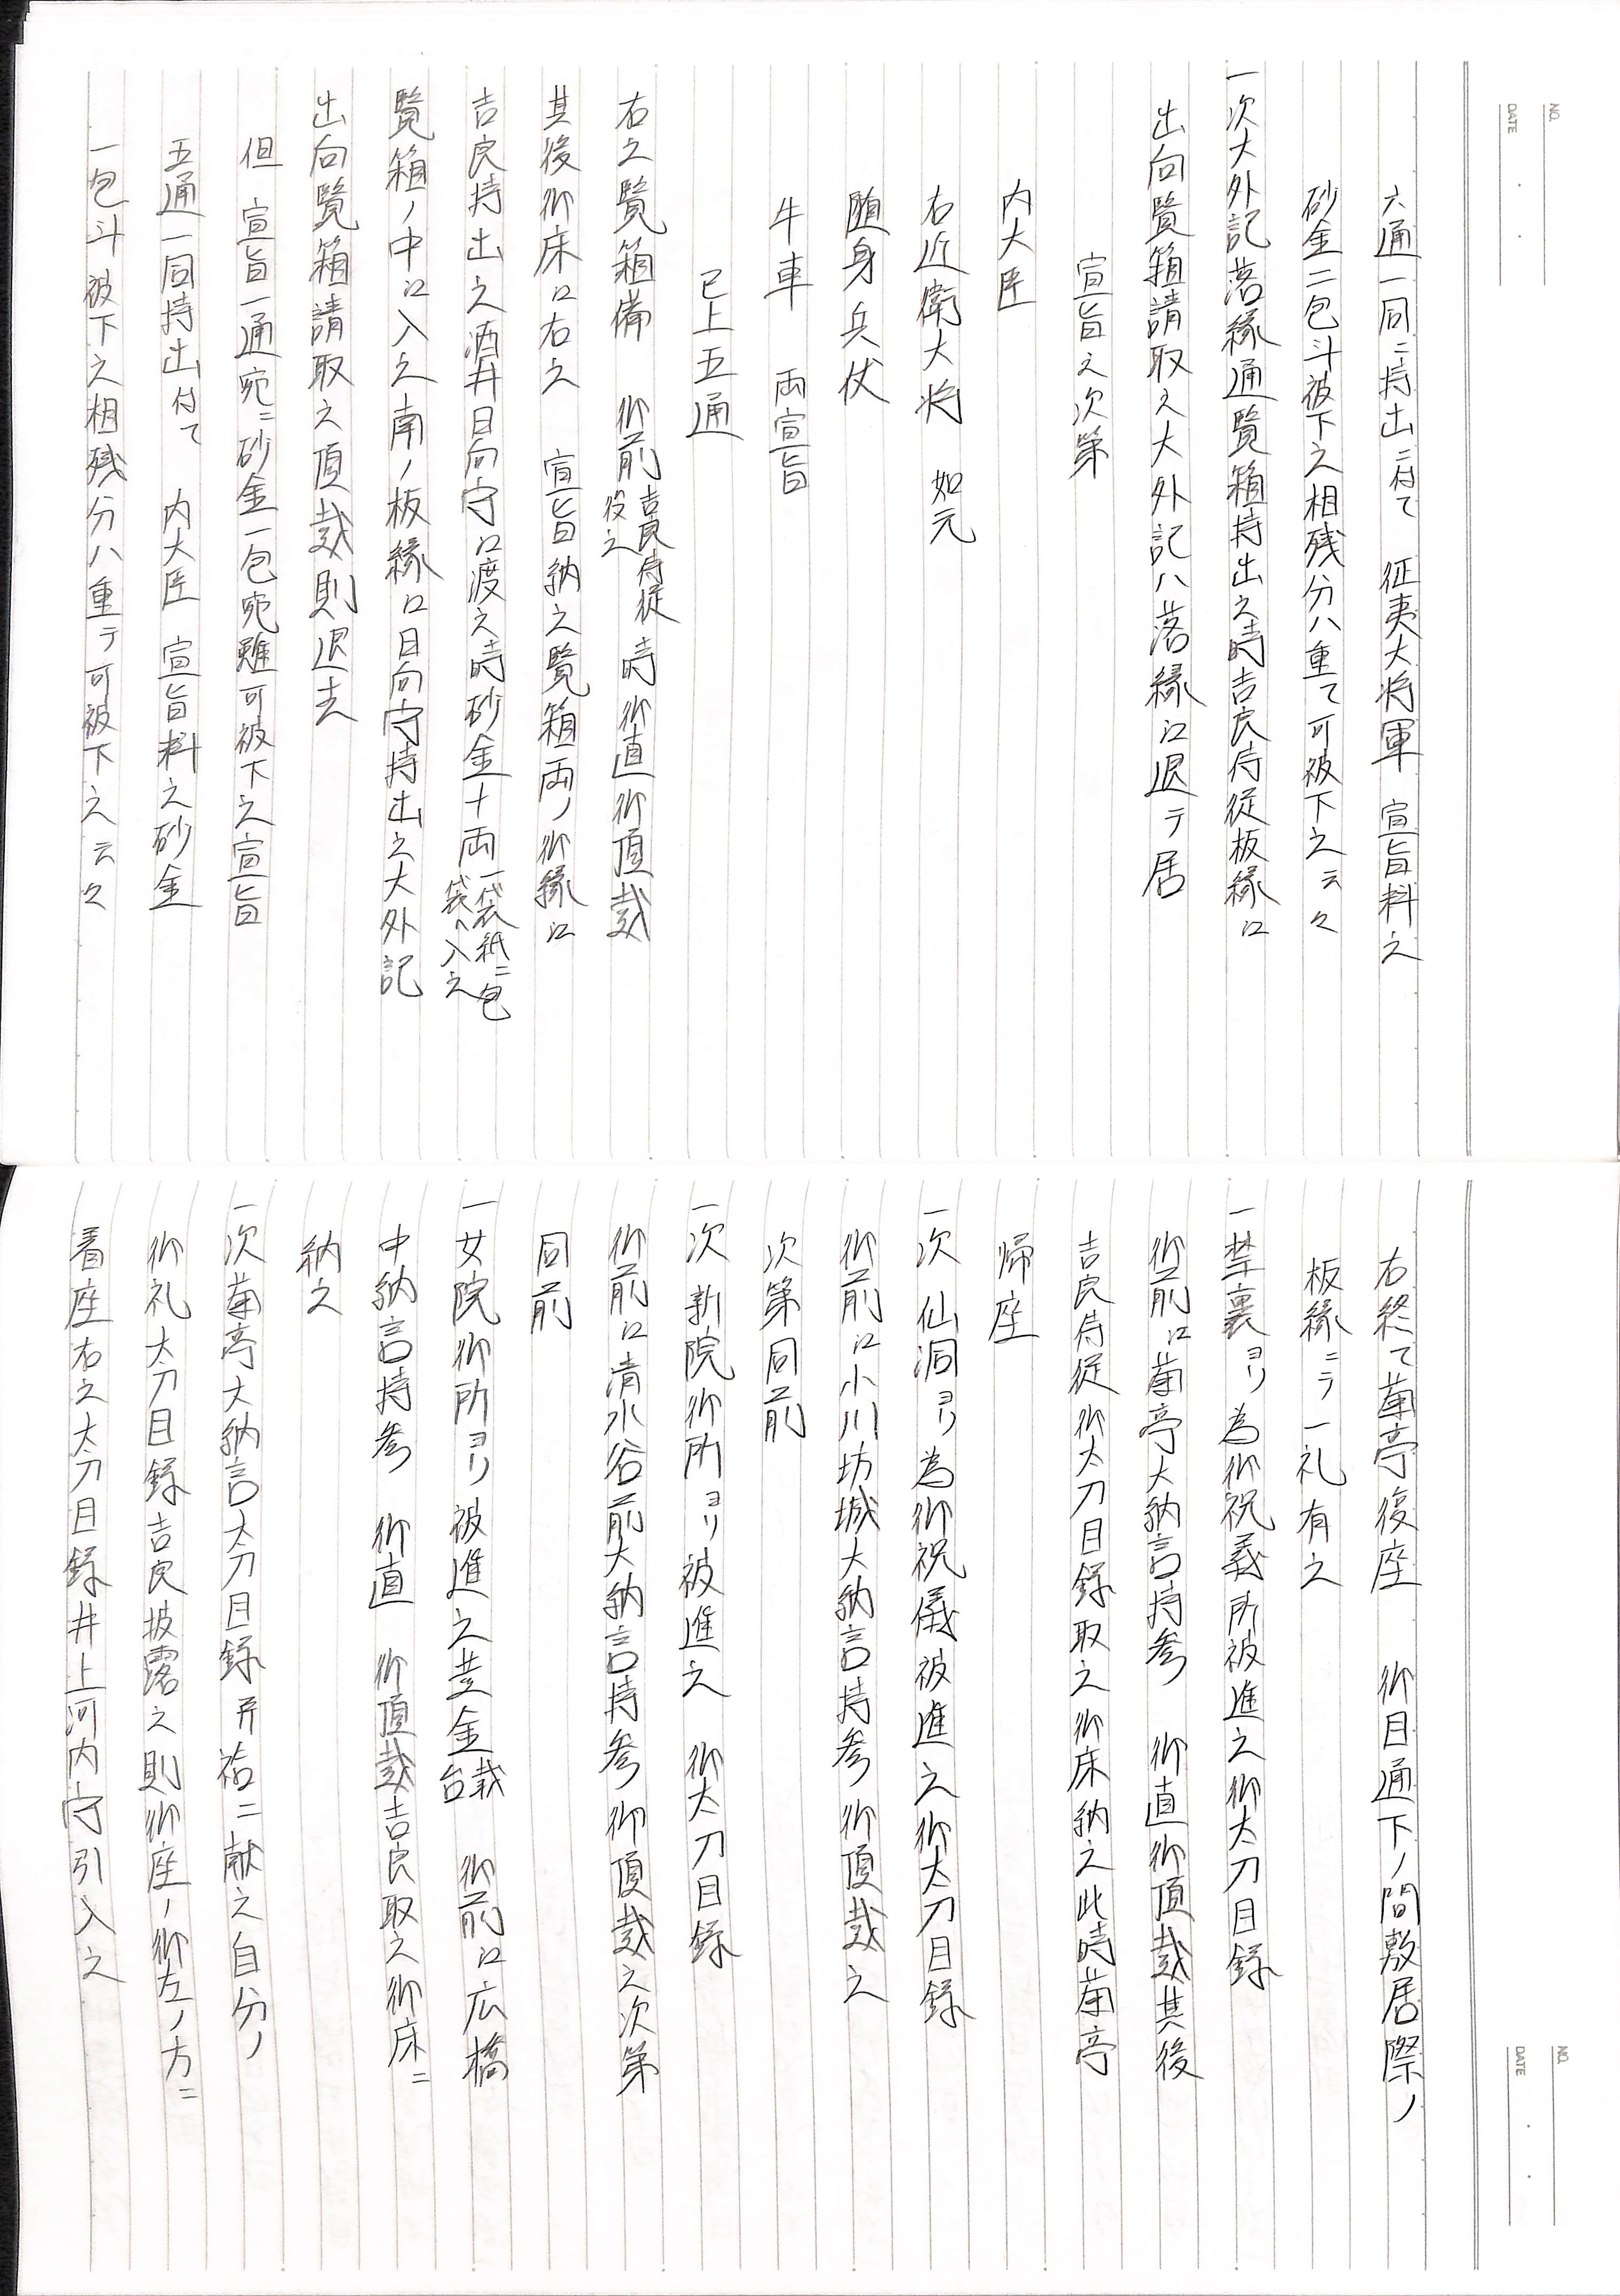 NO.
DATE
六通一同ニ持出ニ付て　征夷大将軍　宣旨料之
砂金二包斗被下之相残分ハ重て可被下之云々
一次大外記落縁通覧箱持出之時吉良侍従板縁江
出向覧箱請取之大外記ハ落縁江退テ居
宣旨之次第
内大臣
右近衛大将　如元
随身兵仗
牛車　両宣旨
已上五通
右之覧箱備　御前吉良侍従役之時　御直　御頂戴
其後御床江右之　宣旨納之覧箱両ノ御縁江
吉良持出之酒井日向守江渡之時砂金十両一袋紙ニ包袋へ入之
覧箱ノ中江入之南ノ板縁江日向守持出之大外記
出向覧箱請取之頂戴則退去
但　宣旨一通宛ニ砂金一包宛雖可被下之宣旨
五通一同持出付て　内大臣　宣旨料之砂金
一包斗被下之相残分ハ重テ可被下之云々
NO.
DATE
右終て菊亭復座　御目通下ノ間敷居際ノ
板縁ニテ一礼有之
一禁裏ヨリ為御祝義所被進之御太刀目録
御前江菊亭大納言持参　御直御頂戴其後
吉良侍従御太刀目録取之御床納之此時菊亭
帰座
一次　仙洞ヨリ為御祝儀被進之御太刀目録
御前江小川坊城大納言持参御頂戴之
次第同前
一次　新院御所ヨリ被進之　御太刀目録
御前江清水谷前大納言持参御頂戴之次第
同前
一女院御所ヨリ被進之黄金載台　御前江広橋
中納言持参　御直　御頂戴吉良取之御床ニ
納之
一次菊亭大納言太刀目録并袷ニ献之自分ノ
御礼太刀目録吉良披露之則御座ノ御左ノ方ニ
着座右之太刀目録井上河内守引入之